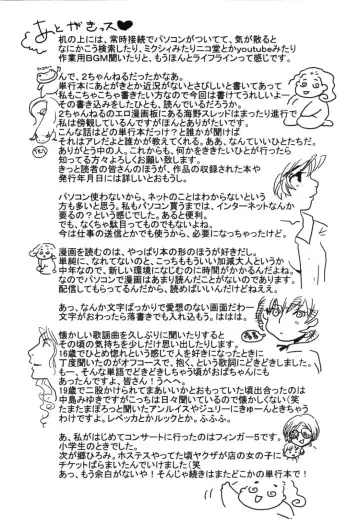 あとがきっス♥
机の上には、常時接続でパソコンがついてて、気が散ると
なにかこう検索したり、ミクシィみたりニコ堂とかyoutubeみたり
作業用BGM聞いたりと、もうほんとライフラインって感じです。
んで、2ちゃんねるだったかなあ。
単行本にあとがきとか近況がないとさびしいと書いてあって
私もこちゃこちゃ書きたい方なので今回は書けてうれしいよー
その書き込みをしたひとも、読んでいるだろうか。
2ちゃんねるのエロ漫画板にある海野スレッドはまったり進行で
私は傍観しているんですがほんとありがたいです。
こんな話はどの単行本だっけ?と誰かが聞けば
それはアレだよと誰かが教えてくれる。ああ、なんていいひとたちだ。
ありがとう中の人、これからも、何かをききたいひとが行ったら
知ってる方々よろしくお願い致します。
きっと読者の皆さんのほうが、作品の収録された本や
発行年月日には詳しいとおもうし。
パソコン使わないから、ネットのことはわからないという
方も多いと思う。私もパソコン買うまでは、インターネットなんか
要るの?という感じでした。あると便利。
でも、なくちゃ駄目ってものでもないよね。
今は仕事の送信とかでも使うから、必要になっちゃったけど。
漫画を読むのは、やっぱり本の形のほうが好きだし。
単純に、なれてないのと、こっちももういい加減大人というか
中年なので、新しい環境になじむのに時間がかかるんだよね。
なのでパソコンで漫画はあまり読んだことがないのであります。
配信してもらってるんだから、読めばいいんだけどねええ。
あっ、なんか文字ばっかりで愛想のない画面だわー
文字がおわったら落書きでも入れ込もう。ははは。
懐かしい歌謡曲を久しぶりに聞いたりすると
その頃の気持ちを少しだけ思い出したりします。
16歳でひとめ惚れという感じで人を好きになったときに
丁度聞いたのがオフコースで、抱く、という歌詞にどきどきでした。
もー、そんな単語でどきどきしちゃう頃がおばちゃんにも
あったんですよ、皆さん!うへへ。
19歳で二股かけられてまあいいかとおもっていた頃出合ったのは
中島みゆきですがこっちは日々聞いているので懐かしくない(笑
たまたまぽろっと聞いたアンルイスやジュリーにきゅーんときちゃう
わけですよ。レベッカとかルックとか。ふふふ。
あ、私がはじめてコンサートに行ったのはフィンガー5です。
小学生のときでした。
次が郷ひろみ。ホステスやってた頃ヤクザが店の女の子に
チケットばらまいたんでいけました(笑
あっ、もう余白がないや!そんじゃ続きはまたどこかの単行本で!